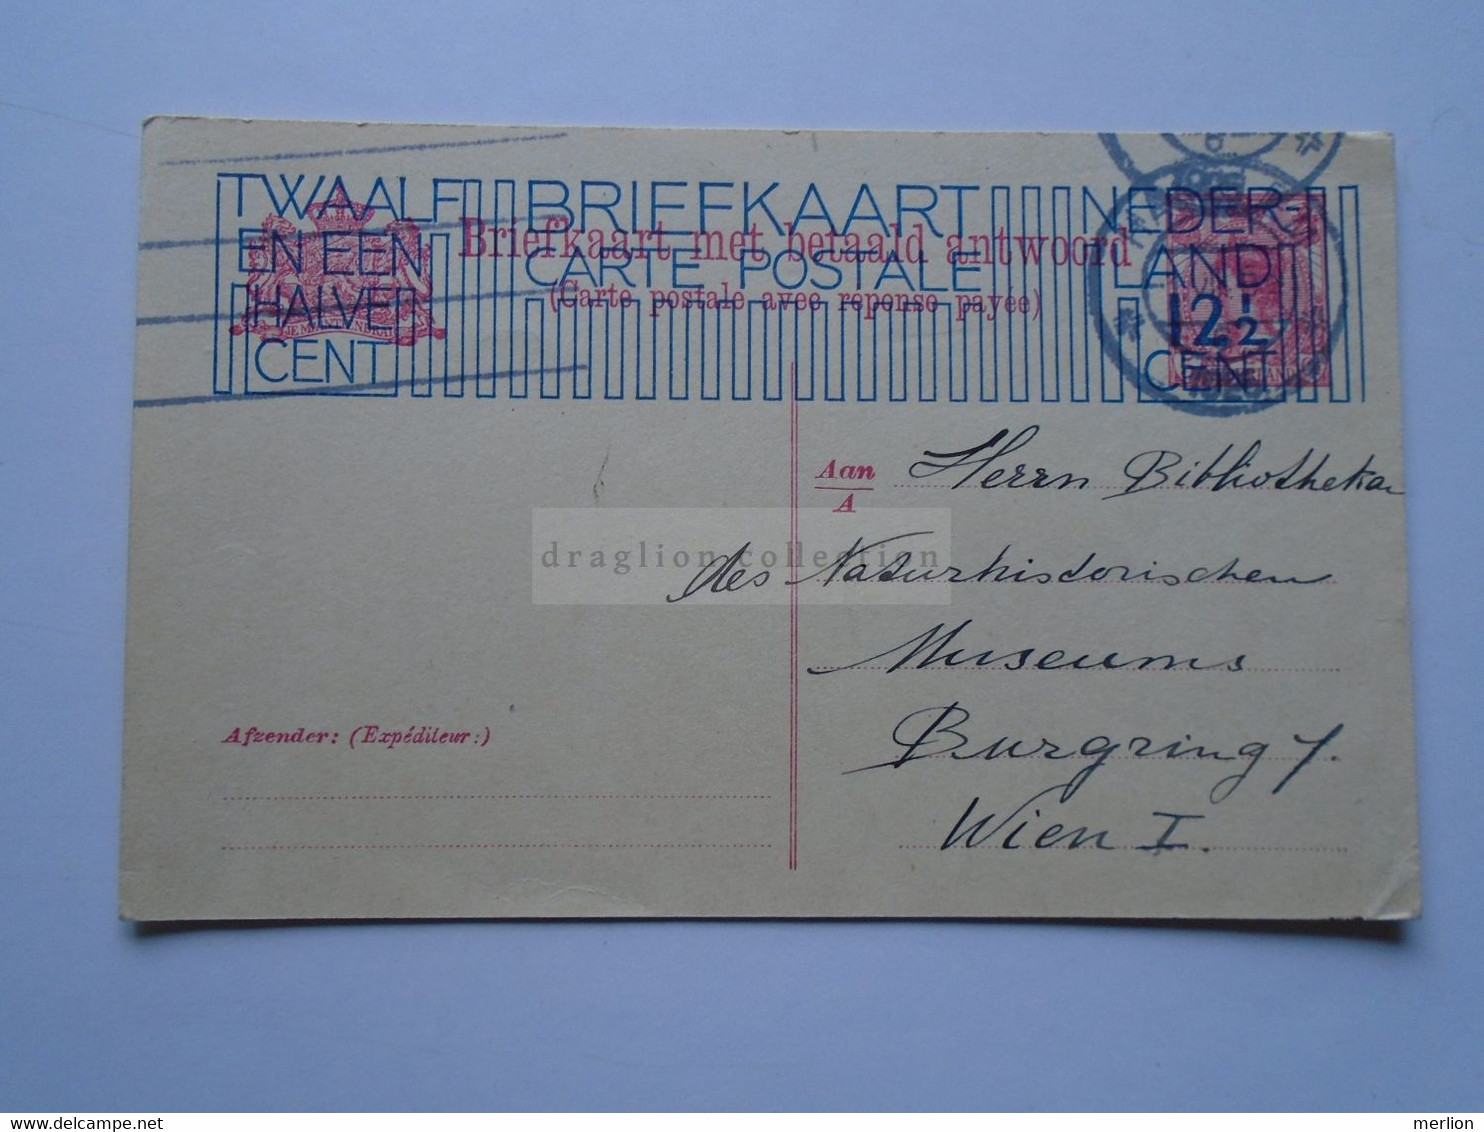 TWAALF BRIEFKAART NEDER-
EN EEN CARTE POSTALE LAND
HALVE 12½
CENT CENT
Briefkaart met betaald antwoord
(Carte postale avec réponse payée)
Aan
A
Herrn Bibliothekar
des Naturhistorischen
Museums
Burgring 7.
Wien I.
Afzender: (Expéditeur:)
draglion collection
merlion